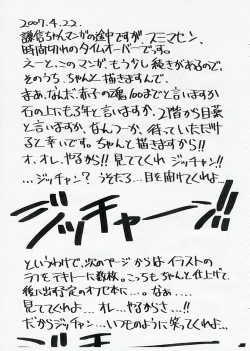 2007.4.22.
謙信ちゃんマンガの途中ですが、スミマセン、
時間切れのタイムオーバーでっす。
えーと、このマンガ、もう少し続きがあるので、
そのうち、ちゃんと描きますんで、
まぁ、なんだ、赤子の魂100までと言いますか
石の上にも3年と言いますか、2階から目薬
と言いますか、なんつーか、待っていただけ
ると幸いです。ちゃんと描きますから!!
オ、オレ、やるから!!見ててくれ ジッチャン!!
…ジッチャン?うそだろ…目を開けてくれよ…
ジッチャーン!!
というわけで、次のページからは イラストの
ラフをテキトーに数枚。こっちもちゃんと仕上げて
後に出す予定のオフセ本に…。なぁ…。
見ててくれよ…オレ…やるからさ…!!
だからジッチャン…いつものように笑ってくれよ…